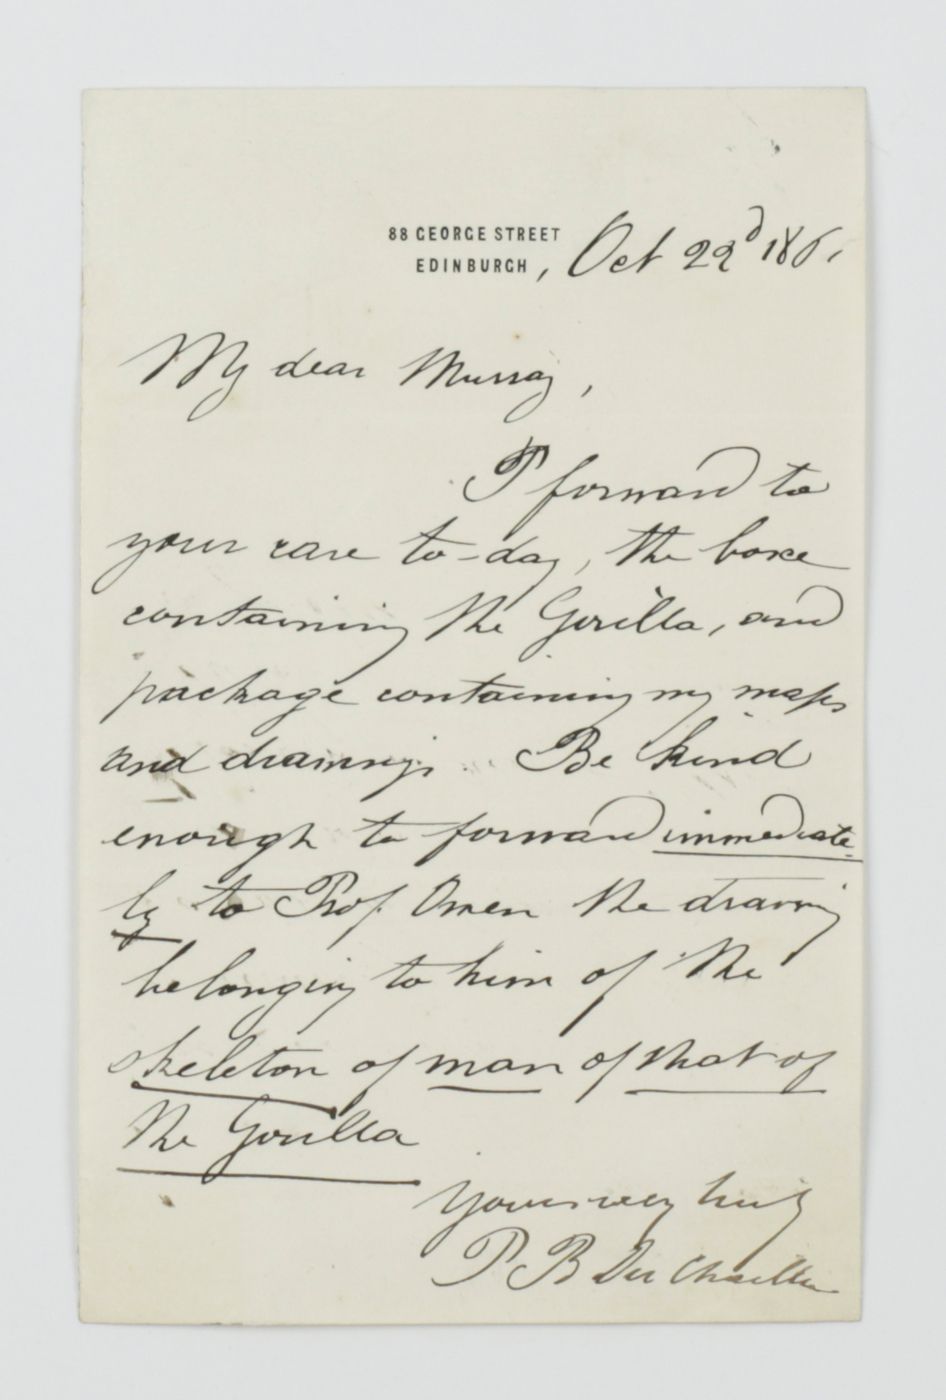 88 GEORGE STREET
EDINBURGH, Oct 22d 186.
My dear Murray,
I forward to
your care to-day, the boxe
containing the Gorilla, and
package containing my maps
and drawings. Be kind
enough to forward immediate-
ly to Prof. Owen the drawing
belonging to him of the
skeleton of man of that of
the Gorilla
Yours very truly
P B Du Chaillu